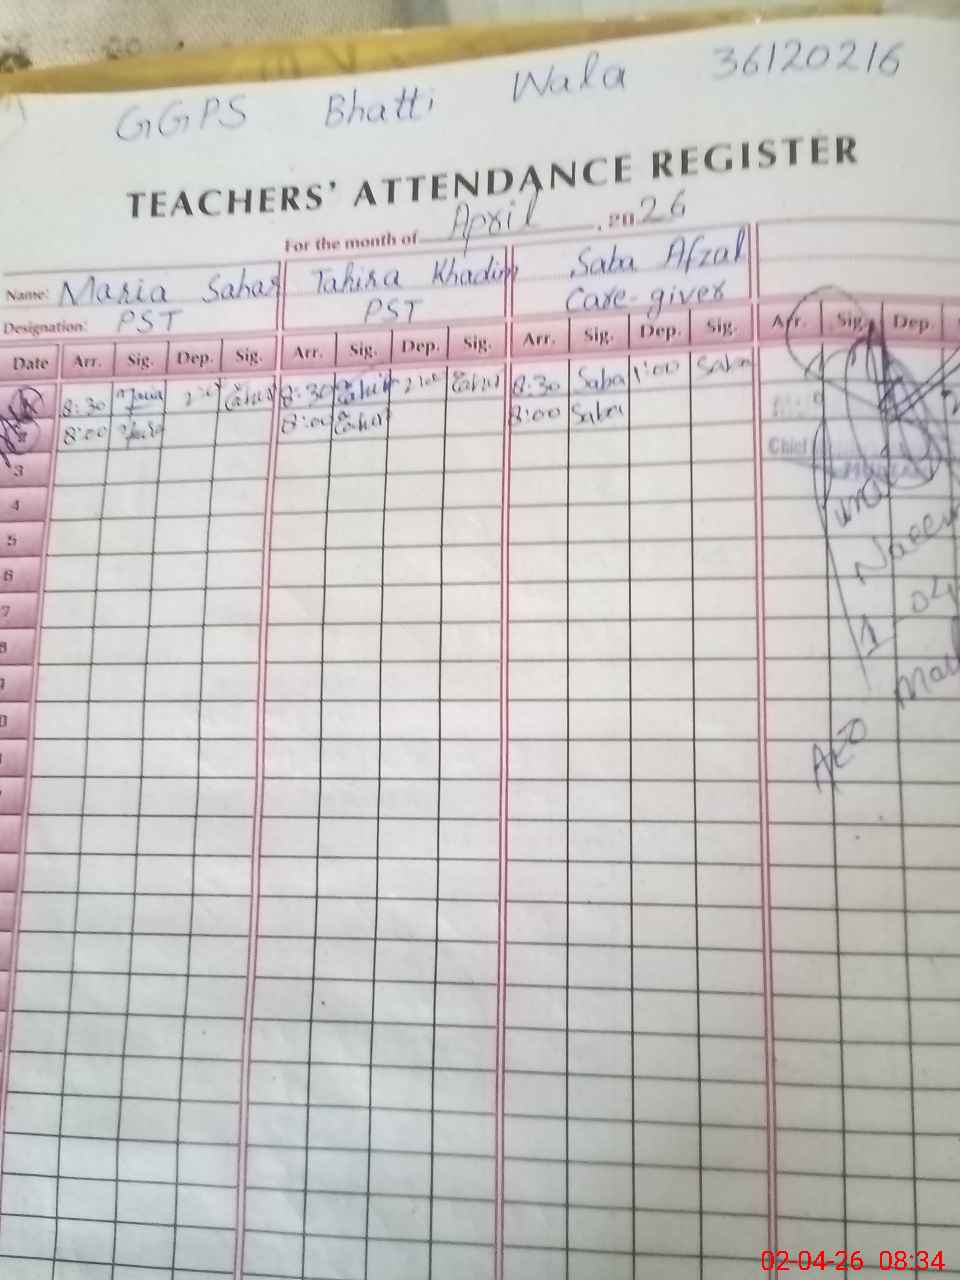 GGPS Bhatti Wala 36120216
TEACHERS' ATTENDANCE REGISTER
For the month of April , 2026
Name: Maria Sahar Tahira Khadim Saba Afzal
Designation: PST PST Care-giver
Date Arr. Sig. Dep. Sig. Arr. Sig. Dep. Sig. Arr. Sig. Dep. Sig. Arr. Sig. Dep.
8:30 Maria 8:30 8:30 Saba 1:00 Saba
2 8:00 8:00 8:00 Saba
3
Chief
4
5
6
7
04
8
1
AEO
02-04-26 08:34